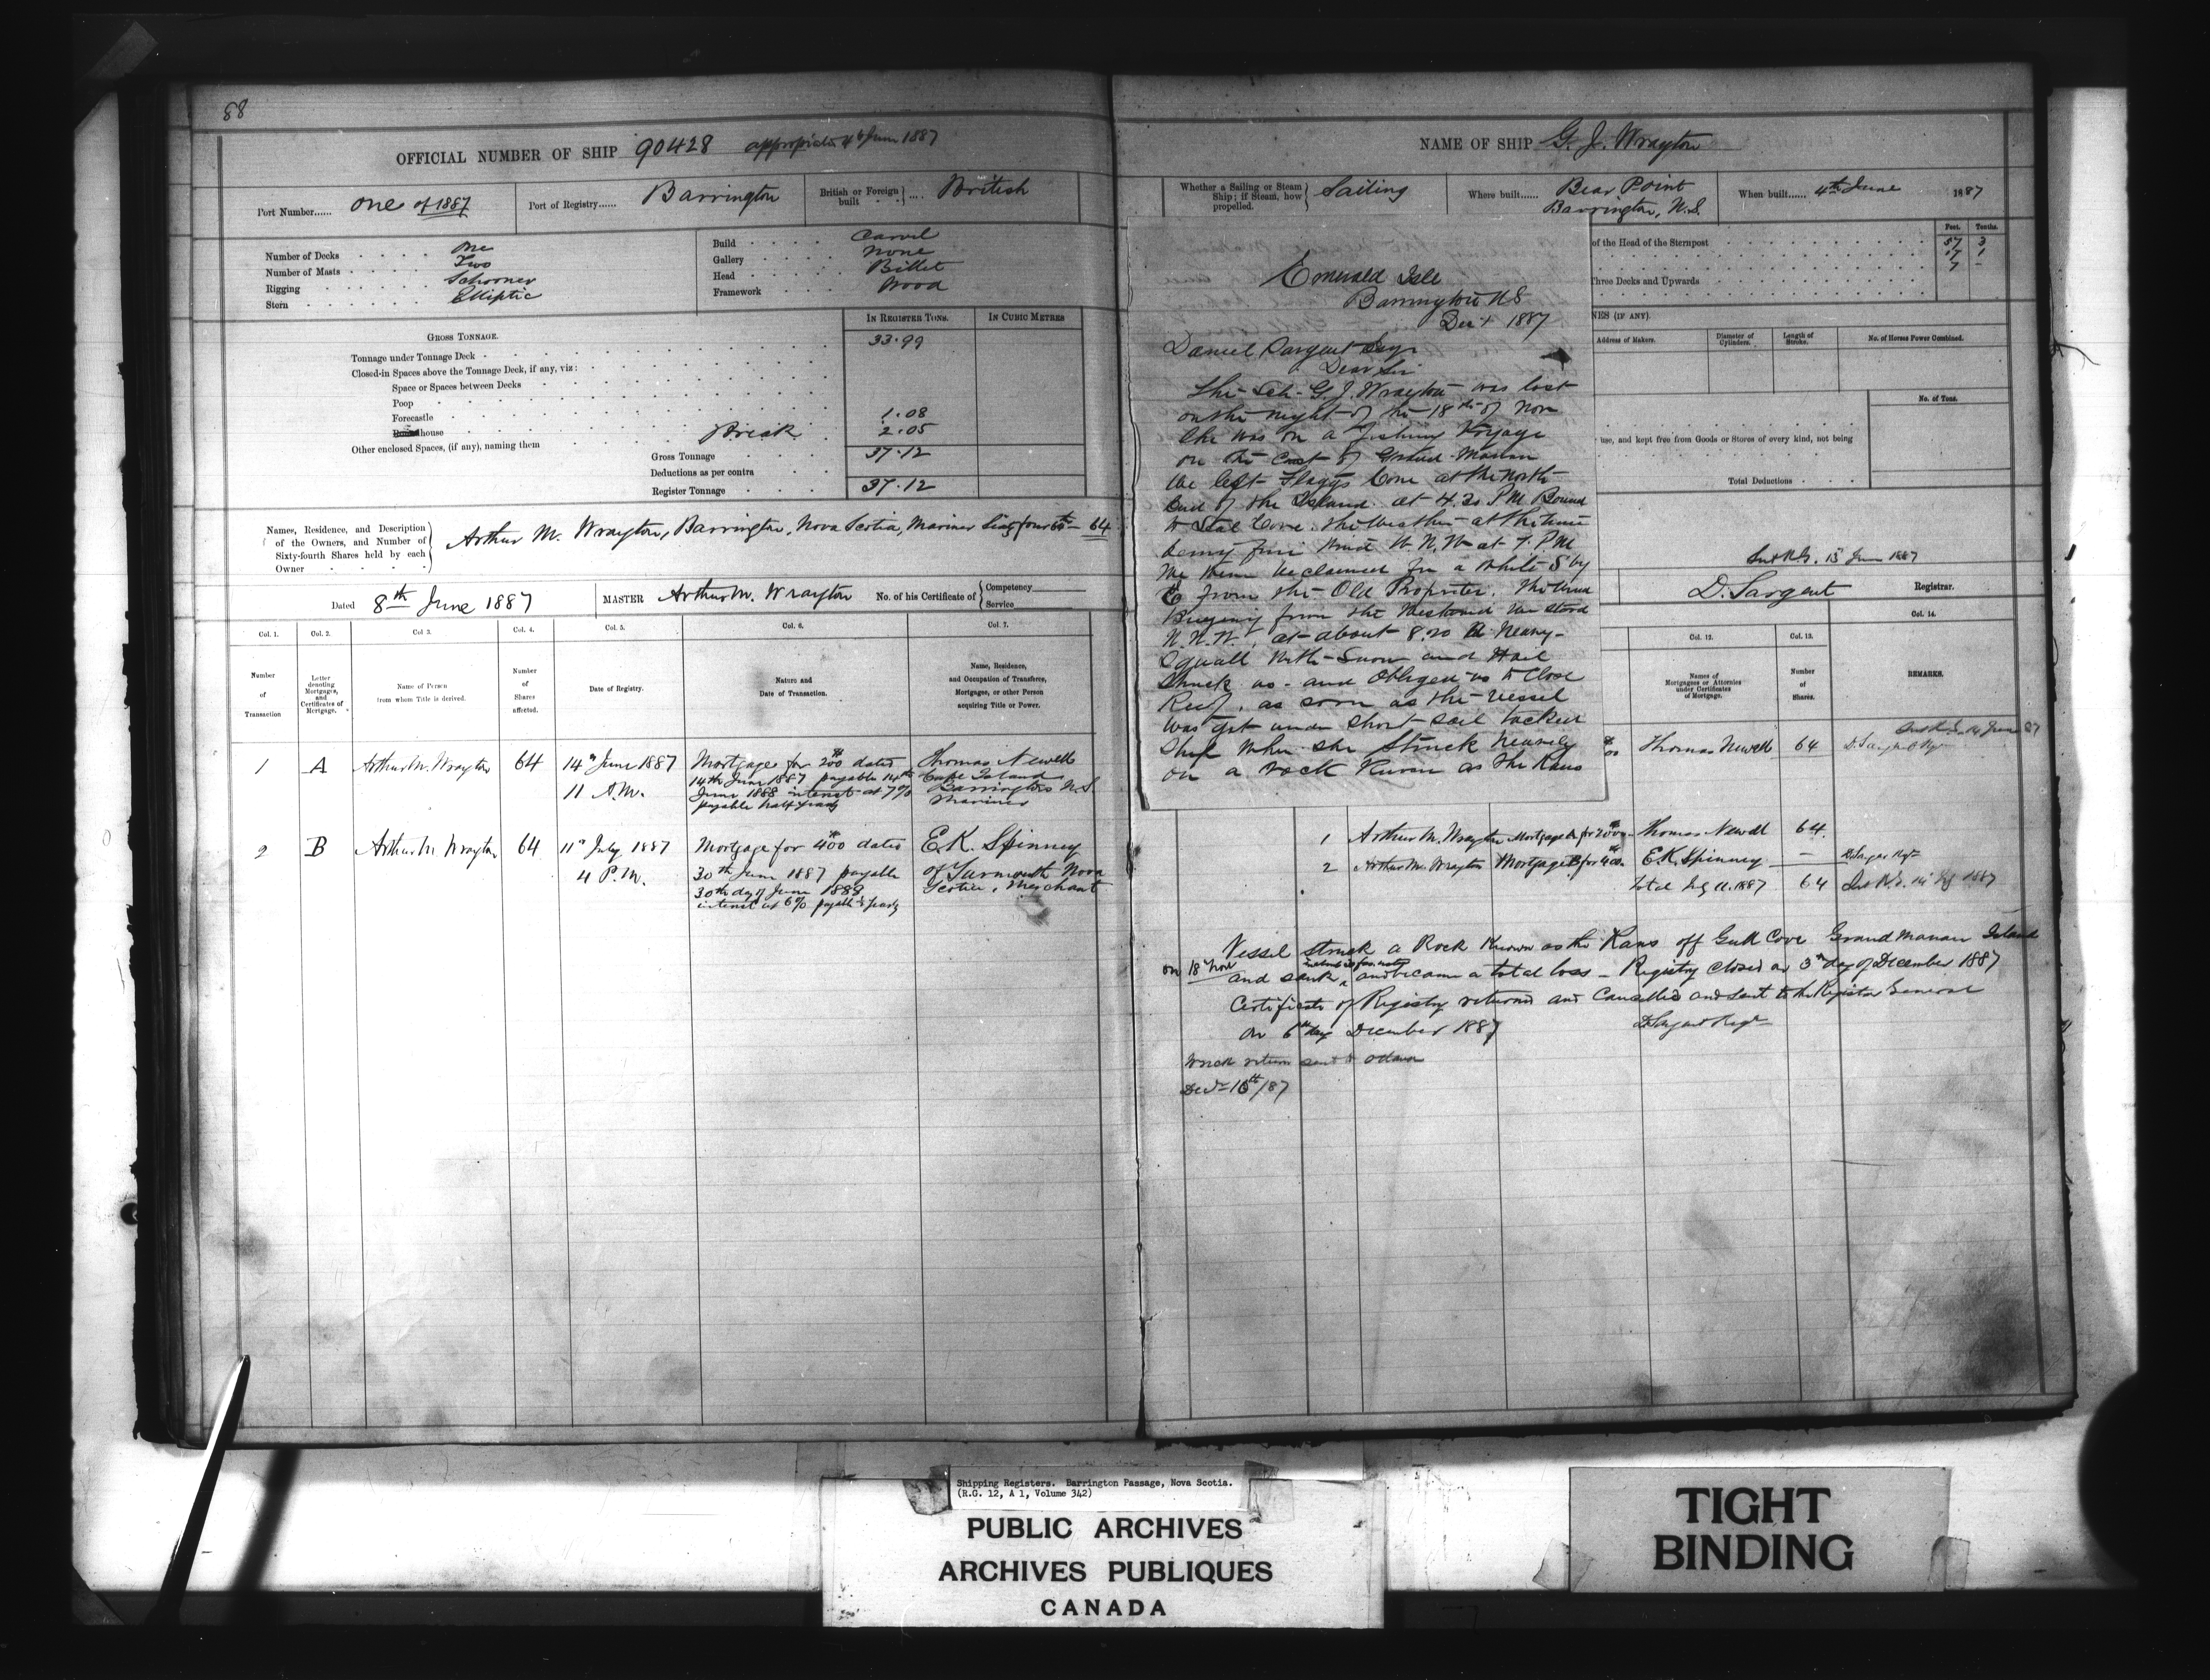 88
OFFICIAL NUMBER OF SHIP 90428 appropriated 4th June 1887
Port Number...... One of 1887
Port of Registry...... Barrington
British or Foreign built .... British
Number of Decks One
Number of Masts Two
Rigging Schooner
Stern Elliptic
Build Carvel
Gallery None
Head Billet
Framework Wood
IN REGISTER TONS. IN CUBIC METRES
GROSS TONNAGE.
Tonnage under Tonnage Deck 33.99
Closed-in Spaces above the Tonnage Deck, if any, viz:
Space or Spaces between Decks
Poop
Forecastle 1.08
house Break 2.05
Other enclosed Spaces, (if any), naming them
Gross Tonnage 37.12
Deductions as per contra
Register Tonnage 37.12
Names, Residence, and Description
of the Owners, and Number of
Sixty-fourth Shares held by each
Owner
Arthur M. Wrayton, Barrington, Nova Scotia, Mariner Sixty four 64th 64
Dated 8th June 1887
MASTER Arthur M. Wrayton
No. of his Certificate of Competency Service
Col. 1. Col. 2. Col 3. Col. 4. Col. 5. Col. 6. Col. 7.
Number of Transaction
Letter denoting Mortgages, and Certificates of Mortgage.
Name of Person from whom Title is derived.
Number of Shares affected.
Date of Registry.
Nature and Date of Transaction.
Name, Residence, and Occupation of Transferee, Mortgagee, or other Person acquiring Title or Power.
1 A Arthur M. Wrayton 64 14th June 1887 11 A.M.
Mortgage for 200 dated
14th June 1887 payable 14th
June 1888 interest at 7%
payable half yearly
Thomas Newell
Cape Island
Barrington N.S.
Mariner
2 B Arthur M Wrayton 64 11th July 1887 4 P.M.
Mortgage for 400 dated
30th June 1887 payable
30th day of June 1888
interest at 6% payable yearly
E.K. Spinney
of Yarmouth Nova
Scotia, Merchant
NAME OF SHIP G. J. Wrayton
Whether a Sailing or Steam Ship; if Steam, how propelled. Sailing
Where built...... Bear Point
Barrington, N.S.
When built...... 4th June 1887
Feet. Tenths.
of the Head of the Sternpost 57 3
17 1
7 -
Three Decks and Upwards
NES (IF ANY).
Address of Makers. Diameter of Cylinders. Length of Stroke. No. of Horses Power Combined.
No. of Tons.
use, and kept free from Goods or Stores of every kind, not being
Total Deductions
June 1887
D. Sargent Registrar.
Col. 12. Col. 13. Col. 14.
Names of Mortgagees or Attornies under Certificates of Mortgage.
Number of Shares.
REMARKS.
Thomas Newell 64
Emerald Isle
Barrington N S
Dec 1 1887
Daniel Sargent Esqr
Dear Sir
The Sch. G. J. Wrayton was lost
on the night of the 18th of Nov
She was on a Fishing Voyage
on the Coast of Grand Manan
We left Flaggs Cove at the North
End of the Island at 4.30 P M Bound
to Seal Cove. The Weather at the time
being fine Wind W. N. W at 7. P M
We then becalmed for a while S by
E from the Old Proprietor. The Wind
from the Westward We stood
N. N. W, at about 8.20 A heavy
Squall with Snow and Hail
Struck us and Obliged us to Close
Reef, as soon as the Vessel
was got under short sail tacked
Ship When she Struck heavily
on a rock Known as the Rans
1 Arthur M. Wrayton Mortgage A for 200 Thomas Newell 64
2 Arthur M. Wrayton Mortgage B for 400 E.K. Spinney —
Total July 11. 1887 64
Vessel struck a Rock Known as the Rans off Gull Cove Grand Manan Island
on 18 Nov and sank and became a total loss — Registry Closed on 3rd day of December 1887
Certificate of Registry returned and Cancelled and sent to the Register General
on 6th day December 1887 D Sargent Regr
Wreck return sent to Ottawa
Decr 10th/87
Shipping Registers. Barrington Passage, Nova Scotia.
(R.G. 12, A 1, Volume 342)
PUBLIC ARCHIVES
ARCHIVES PUBLIQUES
CANADA
TIGHT
BINDING